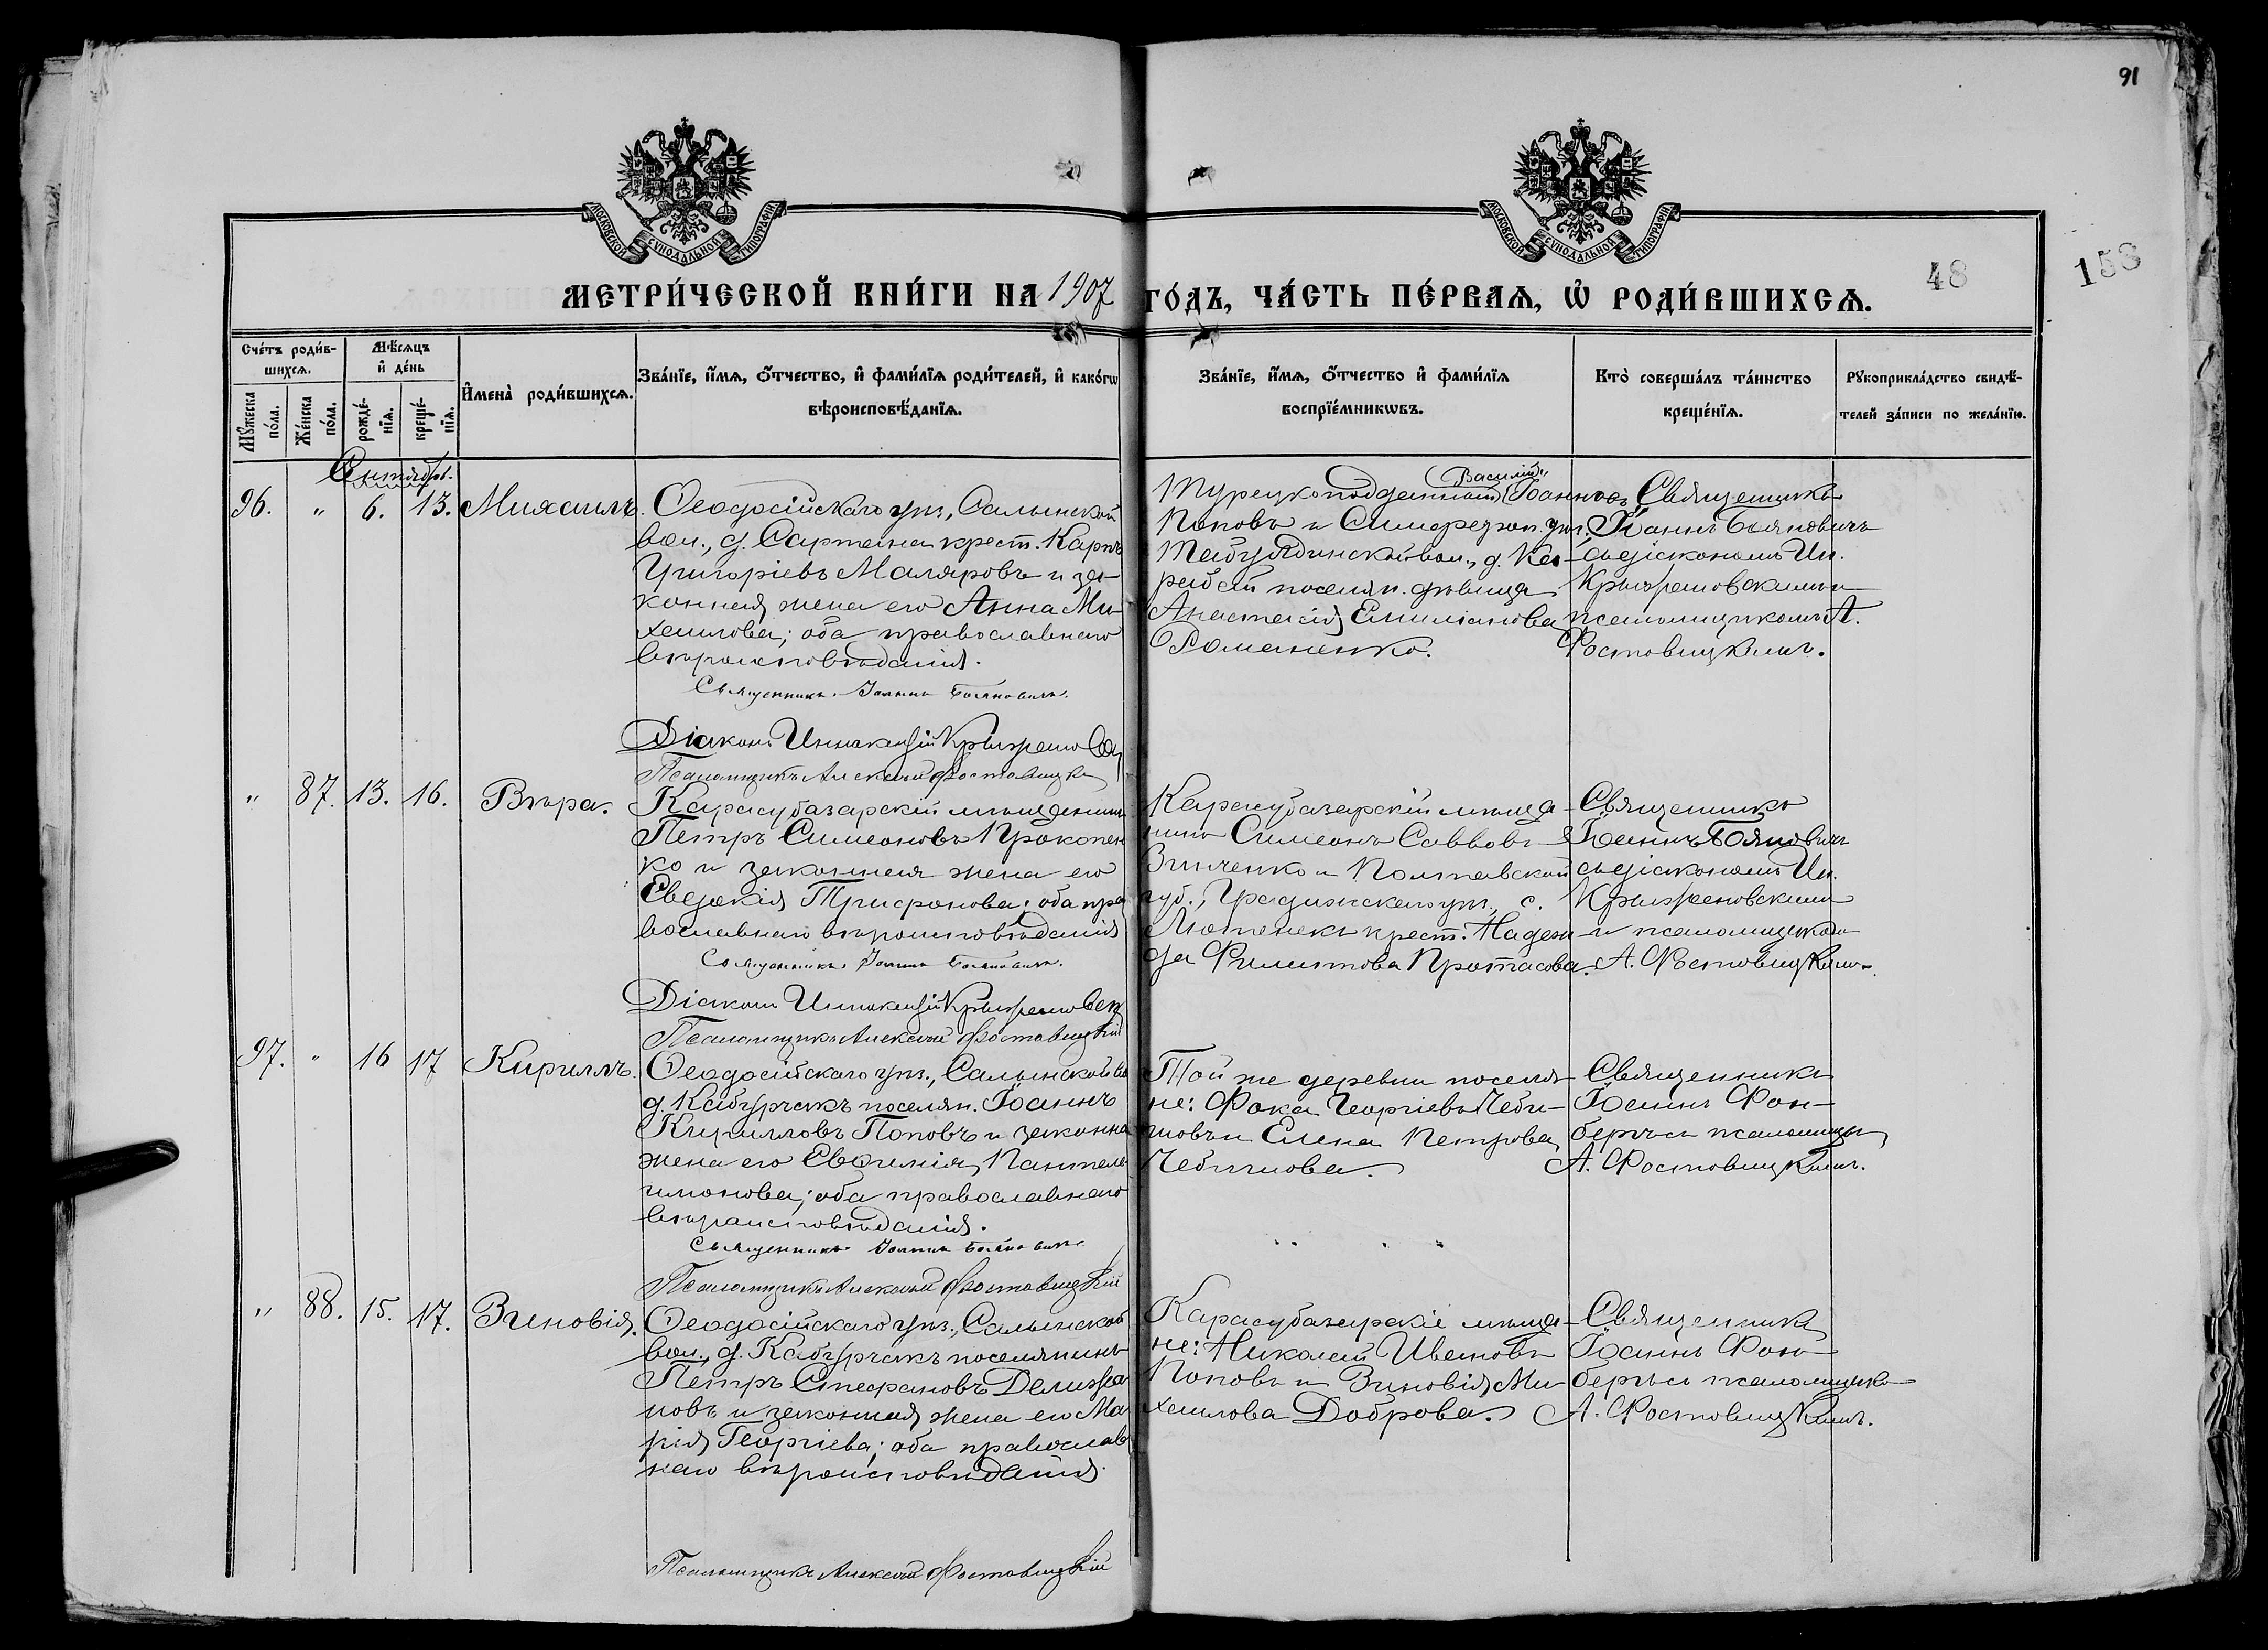 91
МОСКОВСКОЙ СѴНОДАЛЬНОЙ ТИПОГРАФІИ
МОСКОВСКОЙ СѴНОДАЛЬНОЙ ТИПОГРАФІИ
МЕТРИ́ЧЕСКОЙ КНИ́ГИ НА 1907 ГО́ДЪ, ЧА́СТЬ ПЕ́РВАѦ, Ѡ҆ РОДИ́ВШИХСѦ.
48
158
Сче́тъ роди́в-
шихсѧ.
Мꙋ́жеска
по́ла.
Же́нска
по́ла.
Мѣ́сѧцъ
и҆ де́нь
рожде́-
нїѧ.
креще́-
нїѧ.
И҆мена̀ роди́вшихсѧ.
Зва́нїе, и҆́мѧ, ѻ҆́тчество, и҆ фами́лїѧ роди́телей, и҆ како́гѡ
вѣроисповѣ́данїѧ.
Зва́нїе, и҆́мѧ, ѻ҆́тчество и҆ фами́лїѧ
воспрїе́мникѡвъ.
Кто̀ соверша́лъ та́инство
креще́нїѧ.
Рꙋкоприкла́дство свидѣ́-
телей за́писи по жела́нїю.
Сентябрь.
96. " 6. 13. Михаилъ.
Ѳеодосійскаго уѣз., Салынской
вол., д. Сартана крест. Карпъ
Григоріевъ Маляровъ и за-
конная жена его Анна Ми-
хаилова; оба православнаго
вѣроисповѣданія.
Священникъ Іоаннъ Бояновичъ.
Діаконъ Иннокентій
Псаломщикъ Алексѣй Фостовицкій
Турецкоподданный Василій Іоанновъ
Поповъ и Симфероп. уѣз.
Табулдинской вол., д. Ка-
рабай поселян. дѣвица
Анастасія Емиліанова
Романенко.
Священникъ
Іоаннъ Бояновичъ
съ діакономъ Ин.
и
псаломщикомъ А.
Фостовицкимъ.
" 87. 13. 16. Вѣра.
Карасубазарскій мѣщанинъ
Петръ Симеоновъ Прокопен
ко и законная жена его
Евдокія Трифонова; оба пра
вославнаго вѣроисповѣданія
Священникъ Іоаннъ Бояновичъ.
Діаконъ Иннокентій
Псаломщикъ Алексѣй Фостовицкій
Карасубазарскій мѣща-
нинъ Симеонъ Саввовъ
Зинченко и Полтавской
губ., уѣз., с.
Лютенекъ крест. Надеж-
да Филиппова Протасова.
Священникъ
Іоаннъ Бояновичъ
съ діакономъ Ин.
и псаломщикомъ
А. Фостовицкимъ.
97. " 16 17 Кириллъ.
Ѳеодосійскаго уѣз., Салынской во
д. Кабурчакъ поселян. Іоаннъ
Кирилловъ Поповъ и законна
жена его Евфимія Пантеле
имонова; оба православнаго
вѣроисповѣданія.
Священникъ Іоаннъ Бояновичъ
Псаломщикъ Алексѣй Фостовицкій
Той же деревни поселя-
не: Фока Георгіевъ Чеби-
новъ и Елена Петрова
Священникъ
Іоаннъ Фон-
бергъ съ псаломщи
А. Фостовицкимъ.
" 88. 15. 17. Зиновія.
Ѳеодосійскаго уѣз., Салынской
вол., д. Кабурчакъ поселянинъ
Петръ Стефановъ Делижа
новъ и законная жена его Ма
рія Георгіева; оба православ
наго вѣроисповѣданія.
Псаломщикъ Алексѣй Фостовицкій
Карасубазарскіе мѣща-
не: Николай Ивановъ
Поповъ и Зиновія Ми-
хаилова Доброва.
Священникъ
Іоаннъ Фон-
бергъ съ псаломщико
А. Фостовицкимъ.